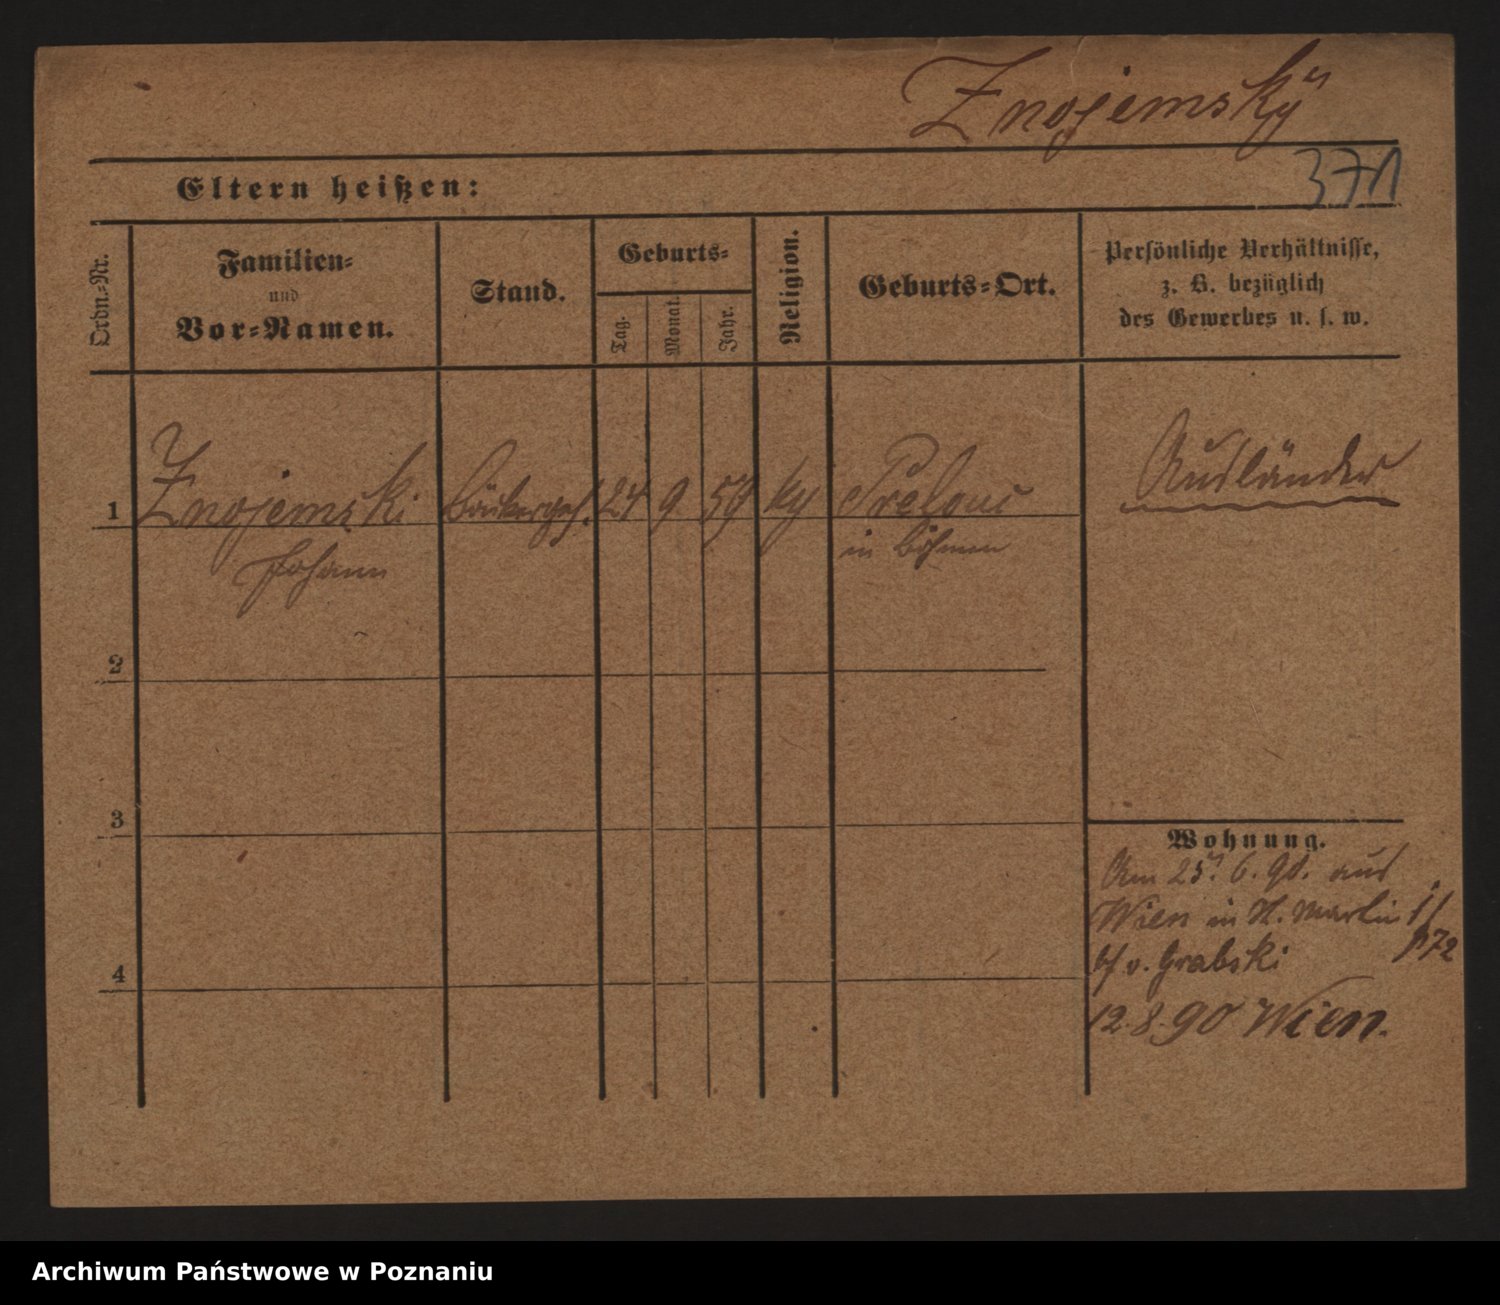 Znojemský
Eltern heißen:
371
Ordn.-Nr.
Familien-
und
Vor-Namen.
Stand.
Geburts-
Tag.
Monat.
Jahr.
Religion.
Geburts-Ort.
Persönliche Verhältnisse,
z. B. bezüglich
des Gewerbes u. s. w.
1 Znojemski Bäckerges. 24 9 59 Prelouc Ausländer
Johann
in Böhmen
2
3
4
Wohnung.
Am 25. 6. 90. aus
Wien in St. Martin
b/ v. Grabski
12.8.90 Wien.
Archiwum Państwowe w Poznaniu